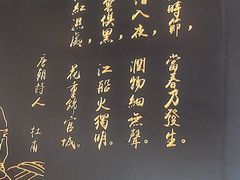 時節，
當春乃發生。
入夜，
潤物細無聲。
雲俱黑，
江船火獨明。
紅濕處，
花重錦官城。
唐朝詩人
杜甫